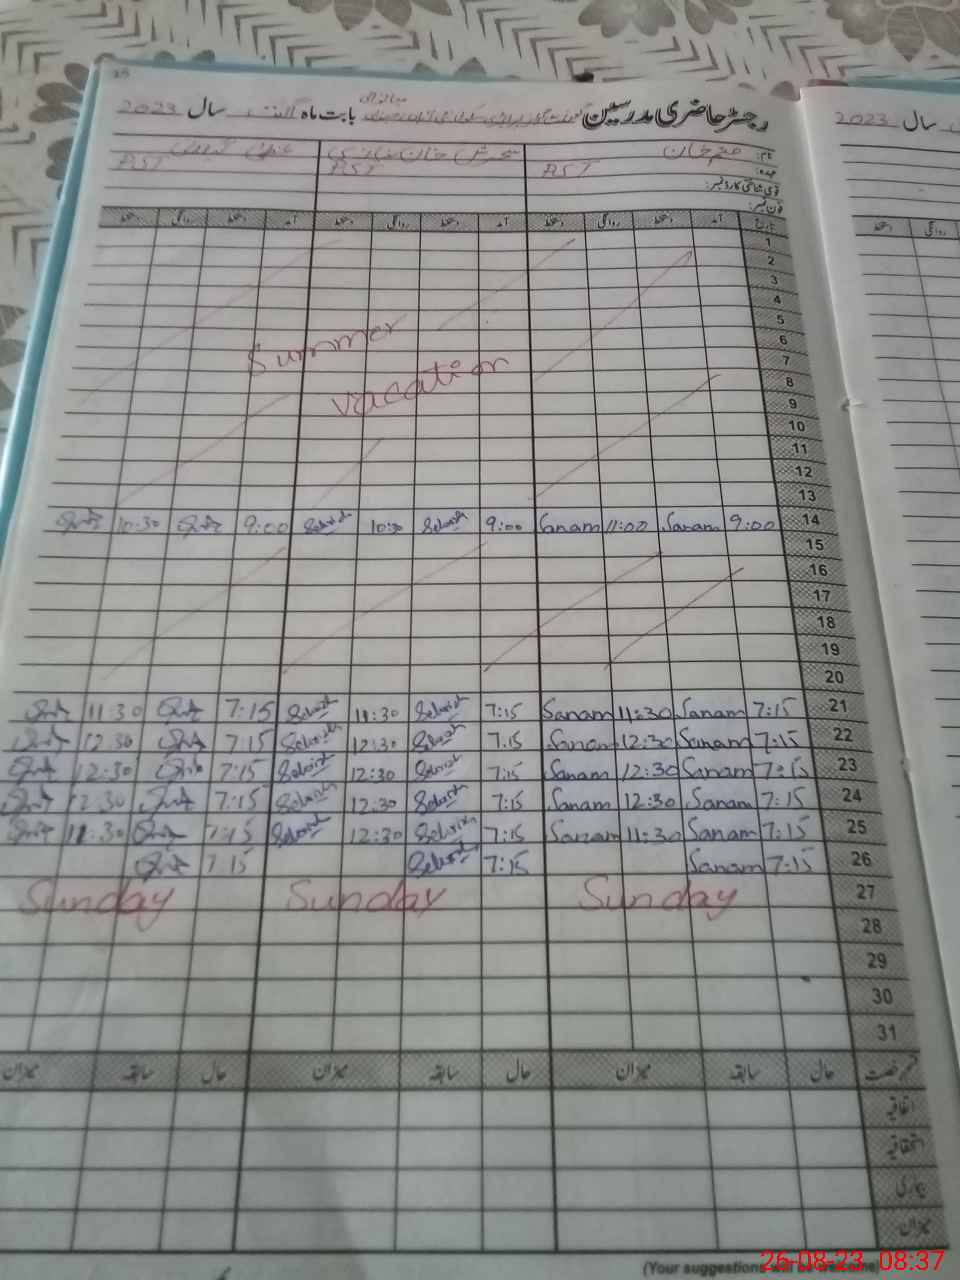 رجسٹر حاضری مدرسین بابت ماہ اگست سال 2023
نام: صنم خان
عہدہ: PST PST PST
قومی شناختی کارڈ نمبر:
فون نمبر:
تاریخ آمد دستخط روانگی دستخط آمد دستخط روانگی دستخط آمد دستخط روانگی دستخط
1
2
3
4
5
6
Summer
7
vacation
8
9
10
11
12
13
14 9:00 Sanam 11:00 Sanam 9:00 Sehrish 10:30 Sehrish 9:00 10:30
15
16
17
18
19
20
21 7:15 Sanam 11:30 Sanam 7:15 Sehrish 11:30 Sehrish 7:15 11:30
22 7:15 Sanam 12:30 Sanam 7:15 Sehrish 12:30 Sehrish 7:15 12:30
23 7:15 Sanam 12:30 Sanam 7:15 Sehrish 12:30 Sehrish 7:15 12:30
24 7:15 Sanam 12:30 Sanam 7:15 Sehrish 12:30 Sehrish 7:15 12:30
25 7:15 Sanam 11:30 Sanam 7:15 Sehrish 12:30 Sehrish 7:15 11:30
26 7:15 Sanam 7:15 Sehrish 7:15
27 Sunday Sunday Sunday
28
29
30
31
قسم رخصت حال سابقہ میزان حال سابقہ میزان حال سابقہ میزان
اتفاقیہ
استحقاقیہ
بیماری
میزان
(Your suggestions will be
26-08-23 08:37
2023 سال
روانگی دستخط